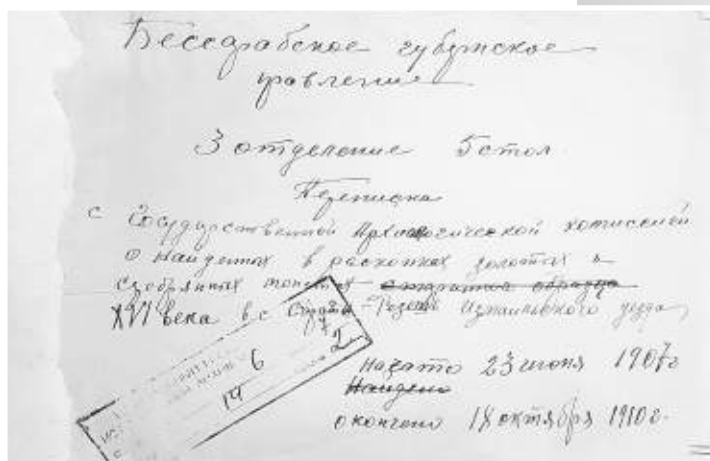 Бессарабское губернское
правление
3 отделение 5 стол
Переписка
с Государственной Археологической комиссией
о найденных в раскопках золотых и
серебрянных монетах старинного образца
XVI века в с. Измаильского уезда
начато 23 июня 1907 г
Найдено
окончено 18 октября 1910 г.
6
19
2